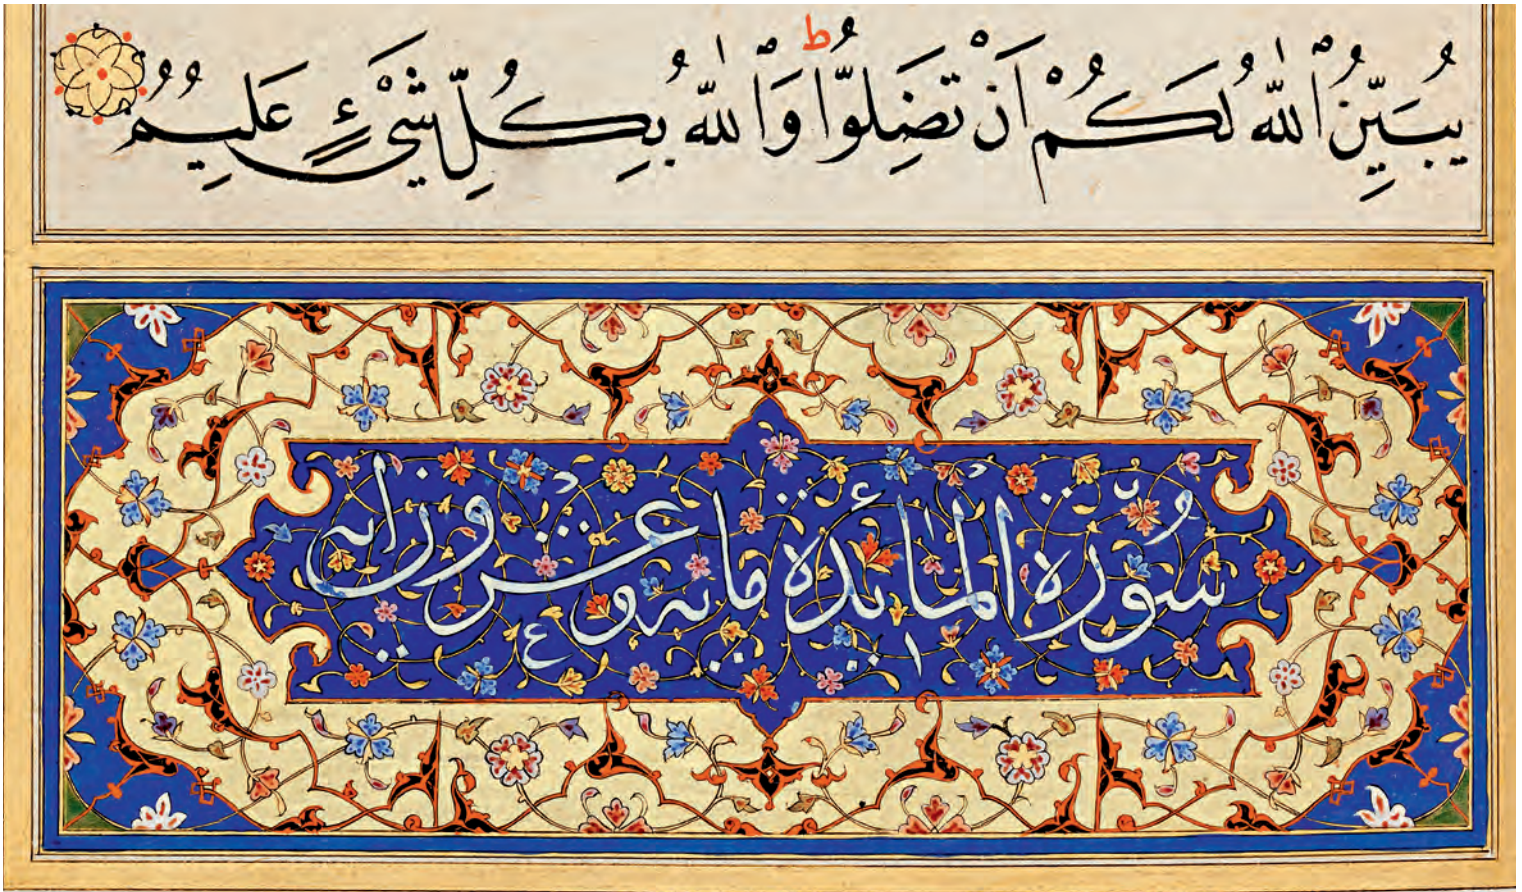 يُبَيِّنُ ٱللّٰهُ لَكُمْ اَنْ تَضِلُّواۗ وَٱللّٰهُ بِكُلِّ شَيْءٍ عَلِيمٌ
سُوْرَةُ الْمٰائدة مايه وعشرون ايه